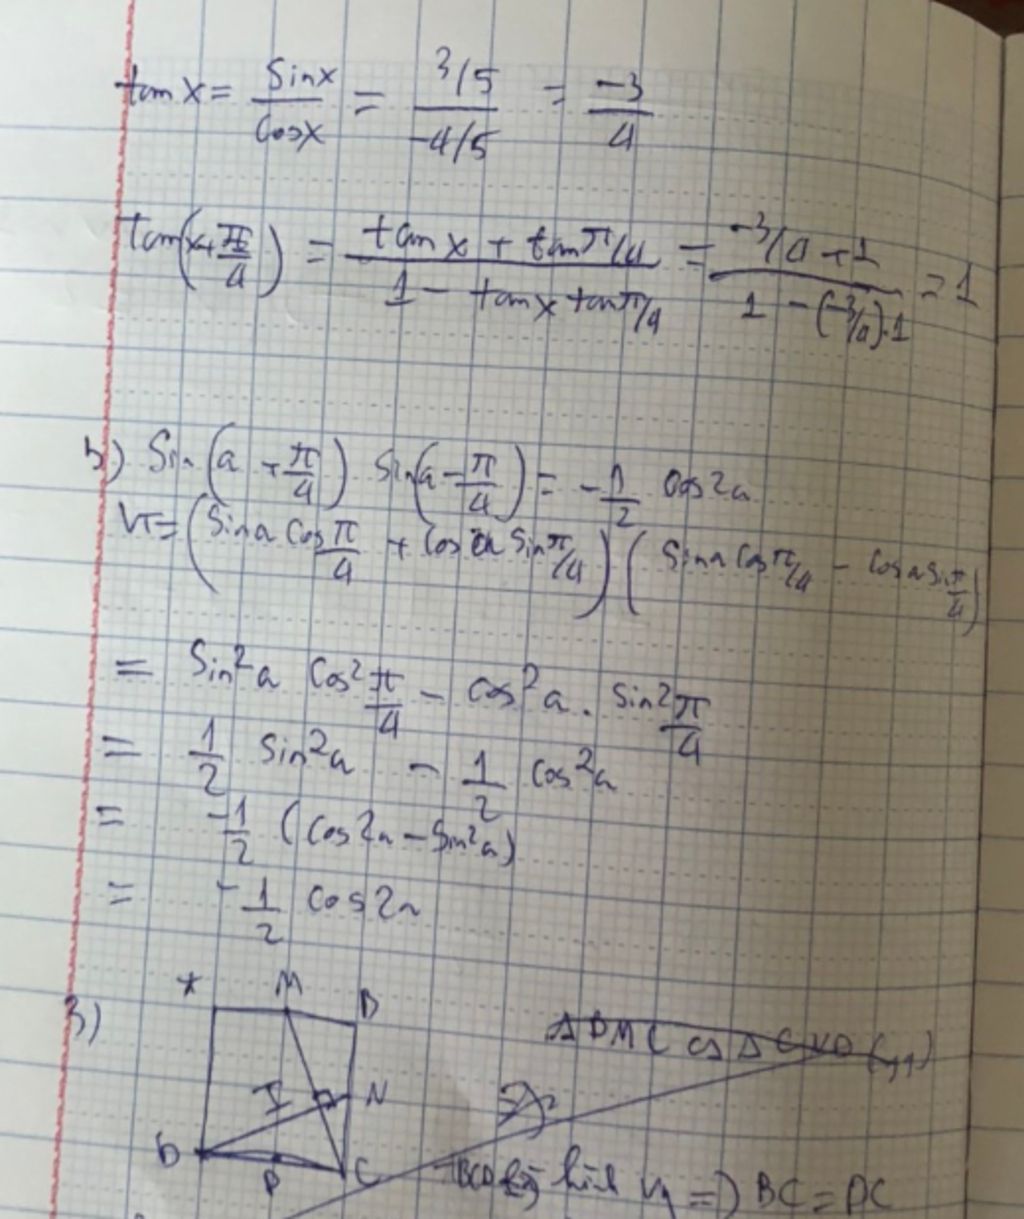 tan x = sin x / cos x = (3/5) / (-4/5) = -3/4
tan(x + π/4) = (tan x + tan π/4) / (1 - tan x tan π/4) = (-3/4 + 1) / (1 - (-3/4).1) = 1
b) Sin(a + π/4) Sin(a - π/4) = -1/2 cos2a
VT = (Sina Cos π/4 + Cosa Sin π/4) (Sina Cos π/4 - Cosa Sin π/4)
= Sin²a Cos² π/4 - cos²a . sin² π/4
= 1/2 sin²a - 1/2 cos²a
= -1/2 (cos²a - sin²a)
= -1/2 cos2a
3)
M B
I N
D P C
=> BC = DC